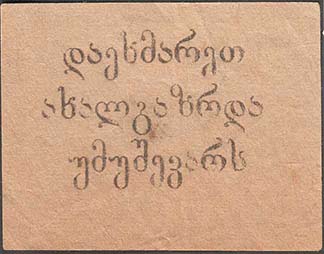 დაეხმარეთ
ახალგაზრდა
უმუშევარს